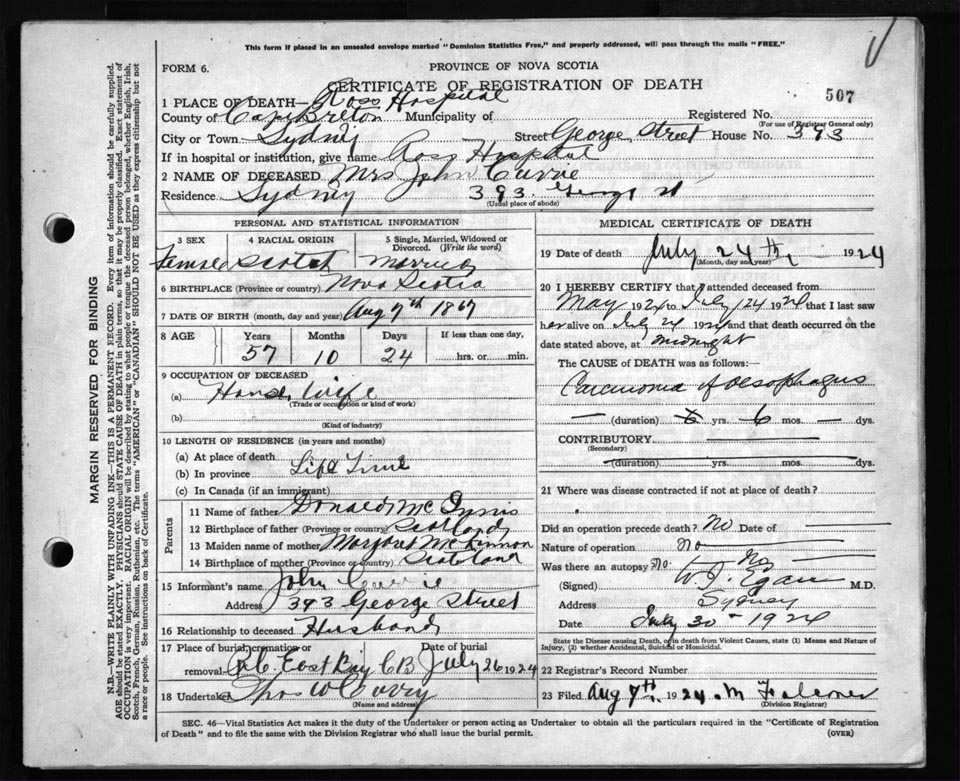 This form if placed in an unsealed envelope marked "Dominion Statistics Free," and properly addressed, will pass through the mails "FREE."
FORM 6. PROVINCE OF NOVA SCOTIA
CERTIFICATE OF REGISTRATION OF DEATH
507
1 PLACE OF DEATH— Ross Hospital
County of Cape Breton Municipality of Registered No.
(For use of Registrar General only)
City or Town Sydney Street George Street House No. 393
If in hospital or institution, give name Ross Hospital
2 NAME OF DECEASED Mrs John Currie
Residence Sydney 393 George St
(Usual place of abode)
PERSONAL AND STATISTICAL INFORMATION
3 SEX 4 RACIAL ORIGIN 5 Single, Married, Widowed or Divorced. (Write the word)
Female Scotch Married
6 BIRTHPLACE (Province or country) Nova Scotia
7 DATE OF BIRTH (month, day and year) Aug 7th 1867
8 AGE Years Months Days If less than one day,
57 10 24 hrs. or min.
9 OCCUPATION OF DECEASED
(a) House Wife
(Trade or occupation or kind of work)
(b)
(Kind of industry)
10 LENGTH OF RESIDENCE (in years and months)
(a) At place of death
(b) In province Life Time
(c) In Canada (if an immigrant)
Parents
11 Name of father Donald Mc Innis
12 Birthplace of father (Province or country) Scotland
13 Maiden name of mother Margaret McKinnon
14 Birthplace of mother (Province or country) Scotland
15 Informant's name John Currie
Address 393 George Street
16 Relationship to deceased Husband
17 Place of burial, cremation or removal Date of burial
R.C. East Bay C B July 26 1924
18 Undertaker Thos W Curry
(Name and address)
MEDICAL CERTIFICATE OF DEATH
19 Date of death July 24th 1924
(Month, day and year)
20 I HEREBY CERTIFY that I attended deceased from
May 1924 to July 24 1924 that I last saw
her alive on July 24 1924 and that death occurred on the
date stated above, at midnight
The CAUSE of DEATH was as follows:
Carcinoma of oesophagus
— (duration) yrs. 6 mos. — dys.
CONTRIBUTORY
(Secondary)
(duration) yrs. mos. dys.
21 Where was disease contracted if not at place of death?
Did an operation precede death? No Date of
Nature of operation no
Was there an autopsy? No.
(Signed) W. J. Egan M.D.
Address Sydney
Date July 30 - 1924
State the Disease causing Death, or in death from Violent Causes, state (1) Means and Nature of
Injury, (2) whether Accidental, Suicidal or Homicidal.
22 Registrar's Record Number
23 Filed Aug 7th 1924
(Division Registrar)
SEC. 46—Vital Statistics Act makes it the duty of the Undertaker or person acting as Undertaker to obtain all the particulars required in the "Certificate of Registration
of Death" and to file the same with the Division Registrar who shall issue the burial permit. (OVER)
MARGIN RESERVED FOR BINDING
N.B.—WRITE PLAINLY WITH UNFADING INK—THIS IS A PERMANENT RECORD. Every item of information should be carefully supplied.
AGE should be stated EXACTLY. PHYSICIANS should STATE CAUSE OF DEATH in plain terms, so that it may be properly classified. Exact statement of
OCCUPATION is very important. RACIAL ORIGIN will be described by stating to what people or tongue the deceased person belonged, whether English, Irish,
Scotch, French, German, Russian, Ruthenian, etc. The terms "AMERICAN" or "CANADIAN" SHOULD NOT BE USED as they express citizenship but not
a race or people. See instructions on back of Certificate.